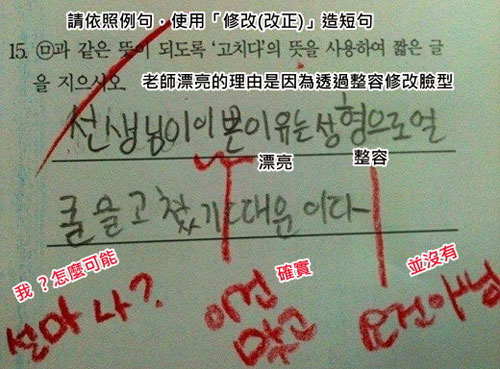 請依照例句，使用「修改(改正)」造短句
15. ㉤과 같은 뜻이 되도록 '고치다'의 뜻을 사용하여 짧은 글
을 지으시오
老師漂亮的理由是因為透過整容修改臉型
선생님이 이쁜이유는 성형으로 얼
漂亮
整容
굴을 고쳤기 때문이다
我？怎麼可能
確實
並沒有
설마 나?
이건
맞고
요건 아님